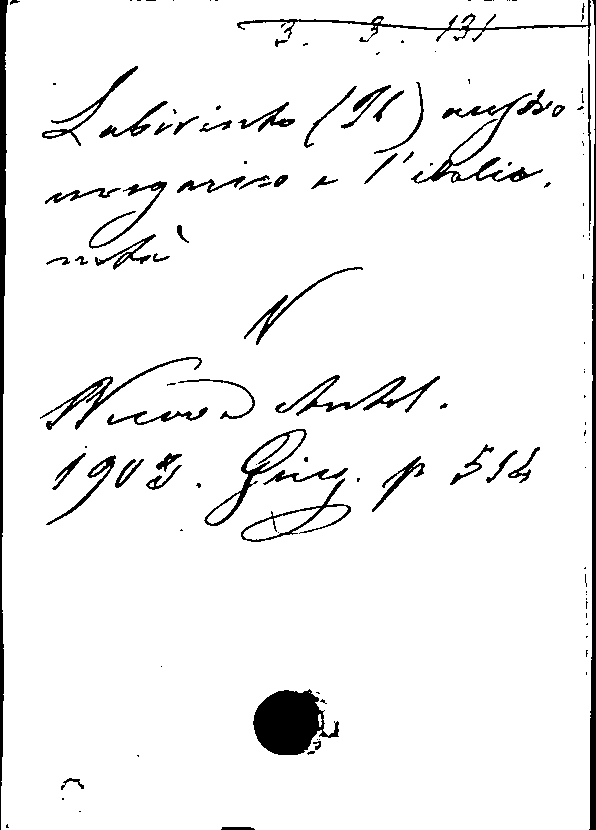 3. 3. 131
Labirinto (Il) austro-
ungarico e l'italia-
nità
N
Nuova Antol.
1903. Giug. p 514